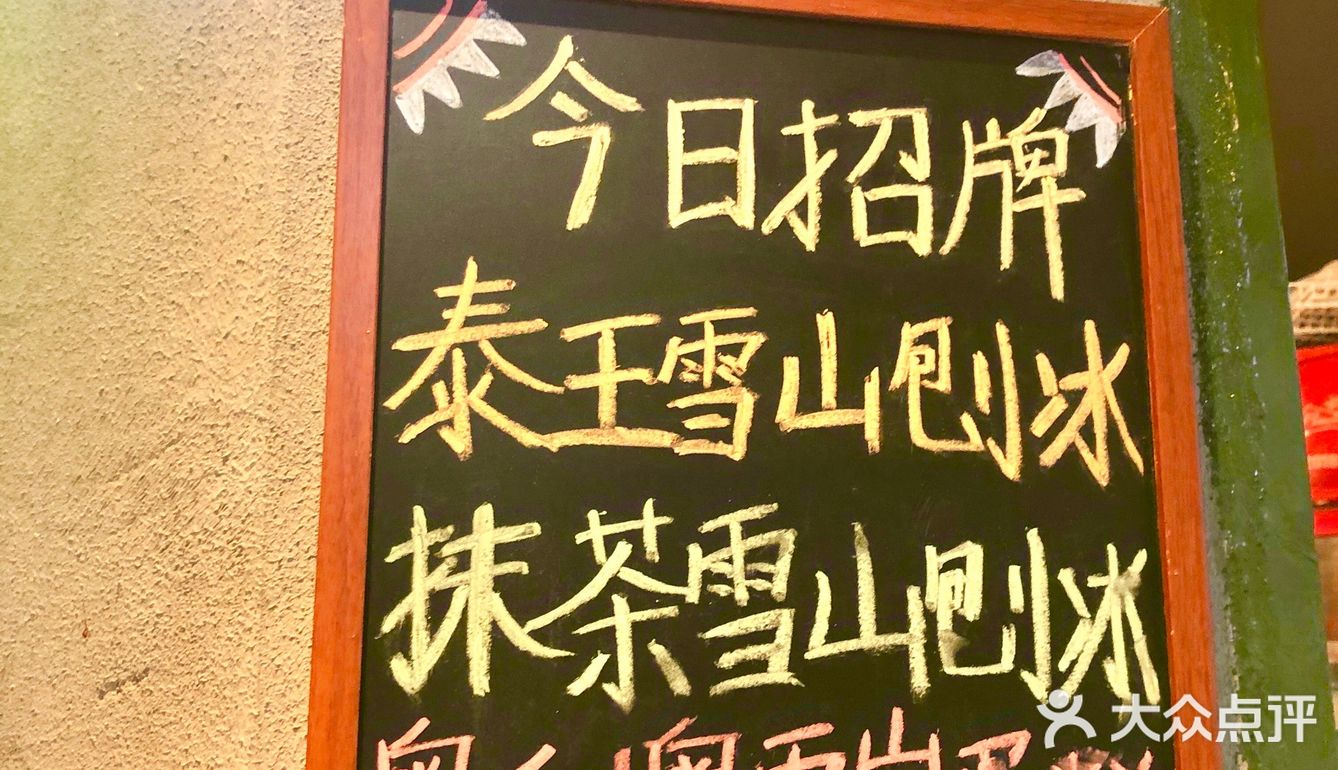 今日招牌
泰王雪山刨冰
抹茶雪山刨冰
奥利奥雪山
大众点评